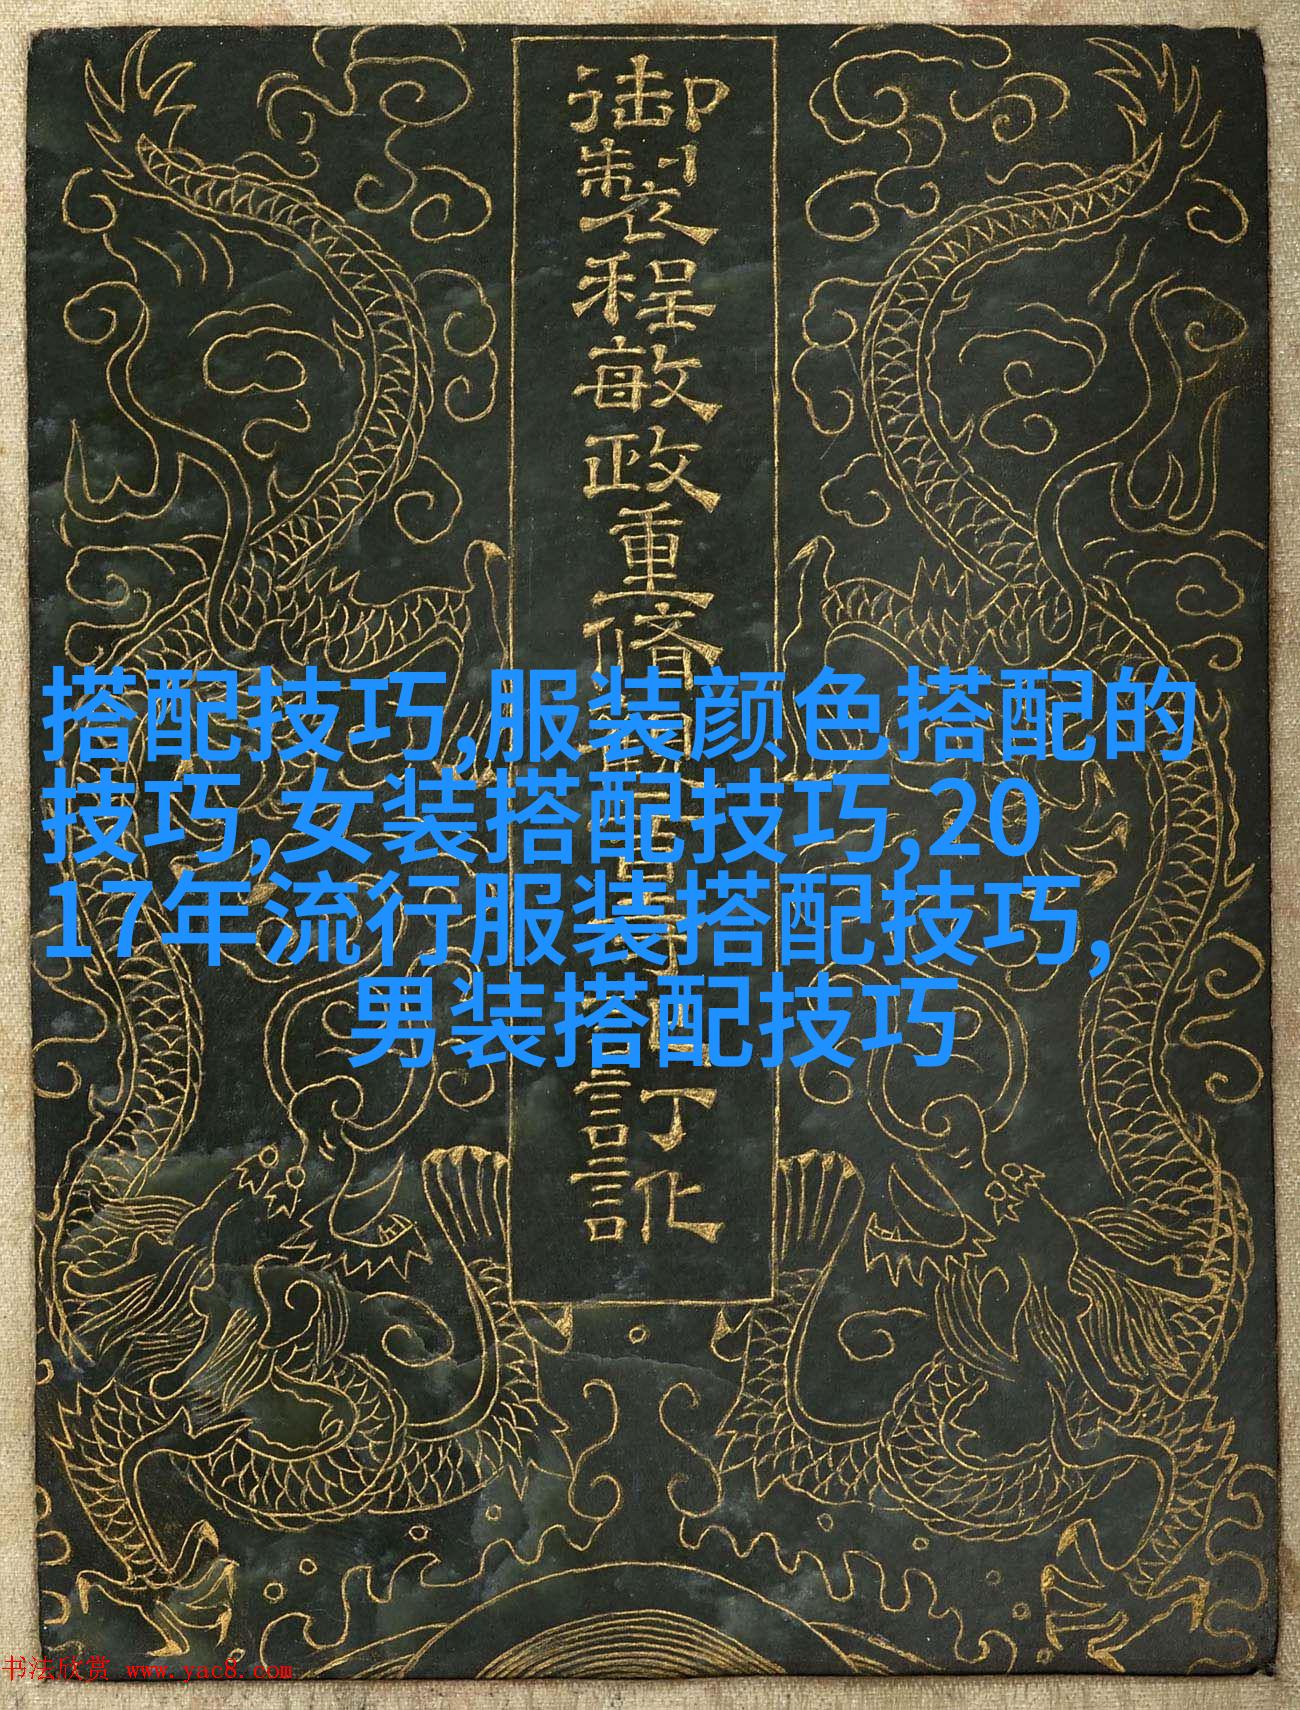 御製程敏政重脩
訂訛
搭配技巧,服装颜色搭配的
技巧,女装搭配技巧,20
17年流行服装搭配技巧,
男装搭配技巧
书法欣赏 www.yac8.com